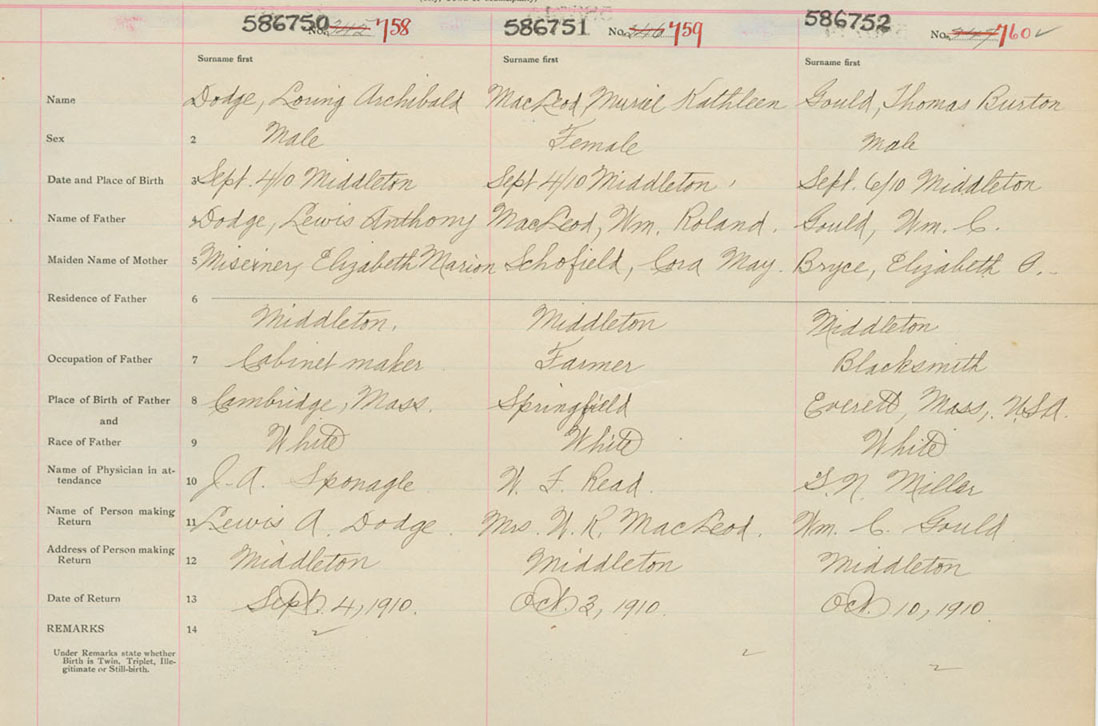 586750 No. 342 758 586751 No. 346 759 586752 No. 347 760
Surname first Surname first Surname first
Name Dodge, Loring Archibald MacLeod, Muriel Kathleen Gould, Thomas Burton
Sex 2 Male Female Male
Date and Place of Birth 3 Sept. 4/10 Middleton Sept 4/10 Middleton Sept. 6/10 Middleton
Name of Father 4 Dodge, Lewis Anthony MacLeod, Wm. Roland. Gould, Wm. C.
Maiden Name of Mother 5 Misener, Elizabeth Marion Schofield, Cora May. Bryce, Elizabeth A.
Residence of Father 6
Middleton. Middleton Middleton
Occupation of Father 7 Cabinet maker Farmer Blacksmith
Place of Birth of Father 8 Cambridge, Mass. Springfield Everett, Mass., U.S.A.
and
Race of Father 9 White White White
Name of Physician in at-
tendance 10 J. A. Sponagle W. F. Read. S. N. Miller
Name of Person making
Return 11 Lewis A. Dodge. Mrs. W. R. MacLeod. Wm. C. Gould
Address of Person making
Return 12 Middleton Middleton Middleton
Date of Return 13 Sept. 4, 1910. Oct 3, 1910. Oct. 10, 1910.
REMARKS 14
Under Remarks state whether
Birth is Twin, Triplet, Ille-
gitimate or Still-birth.